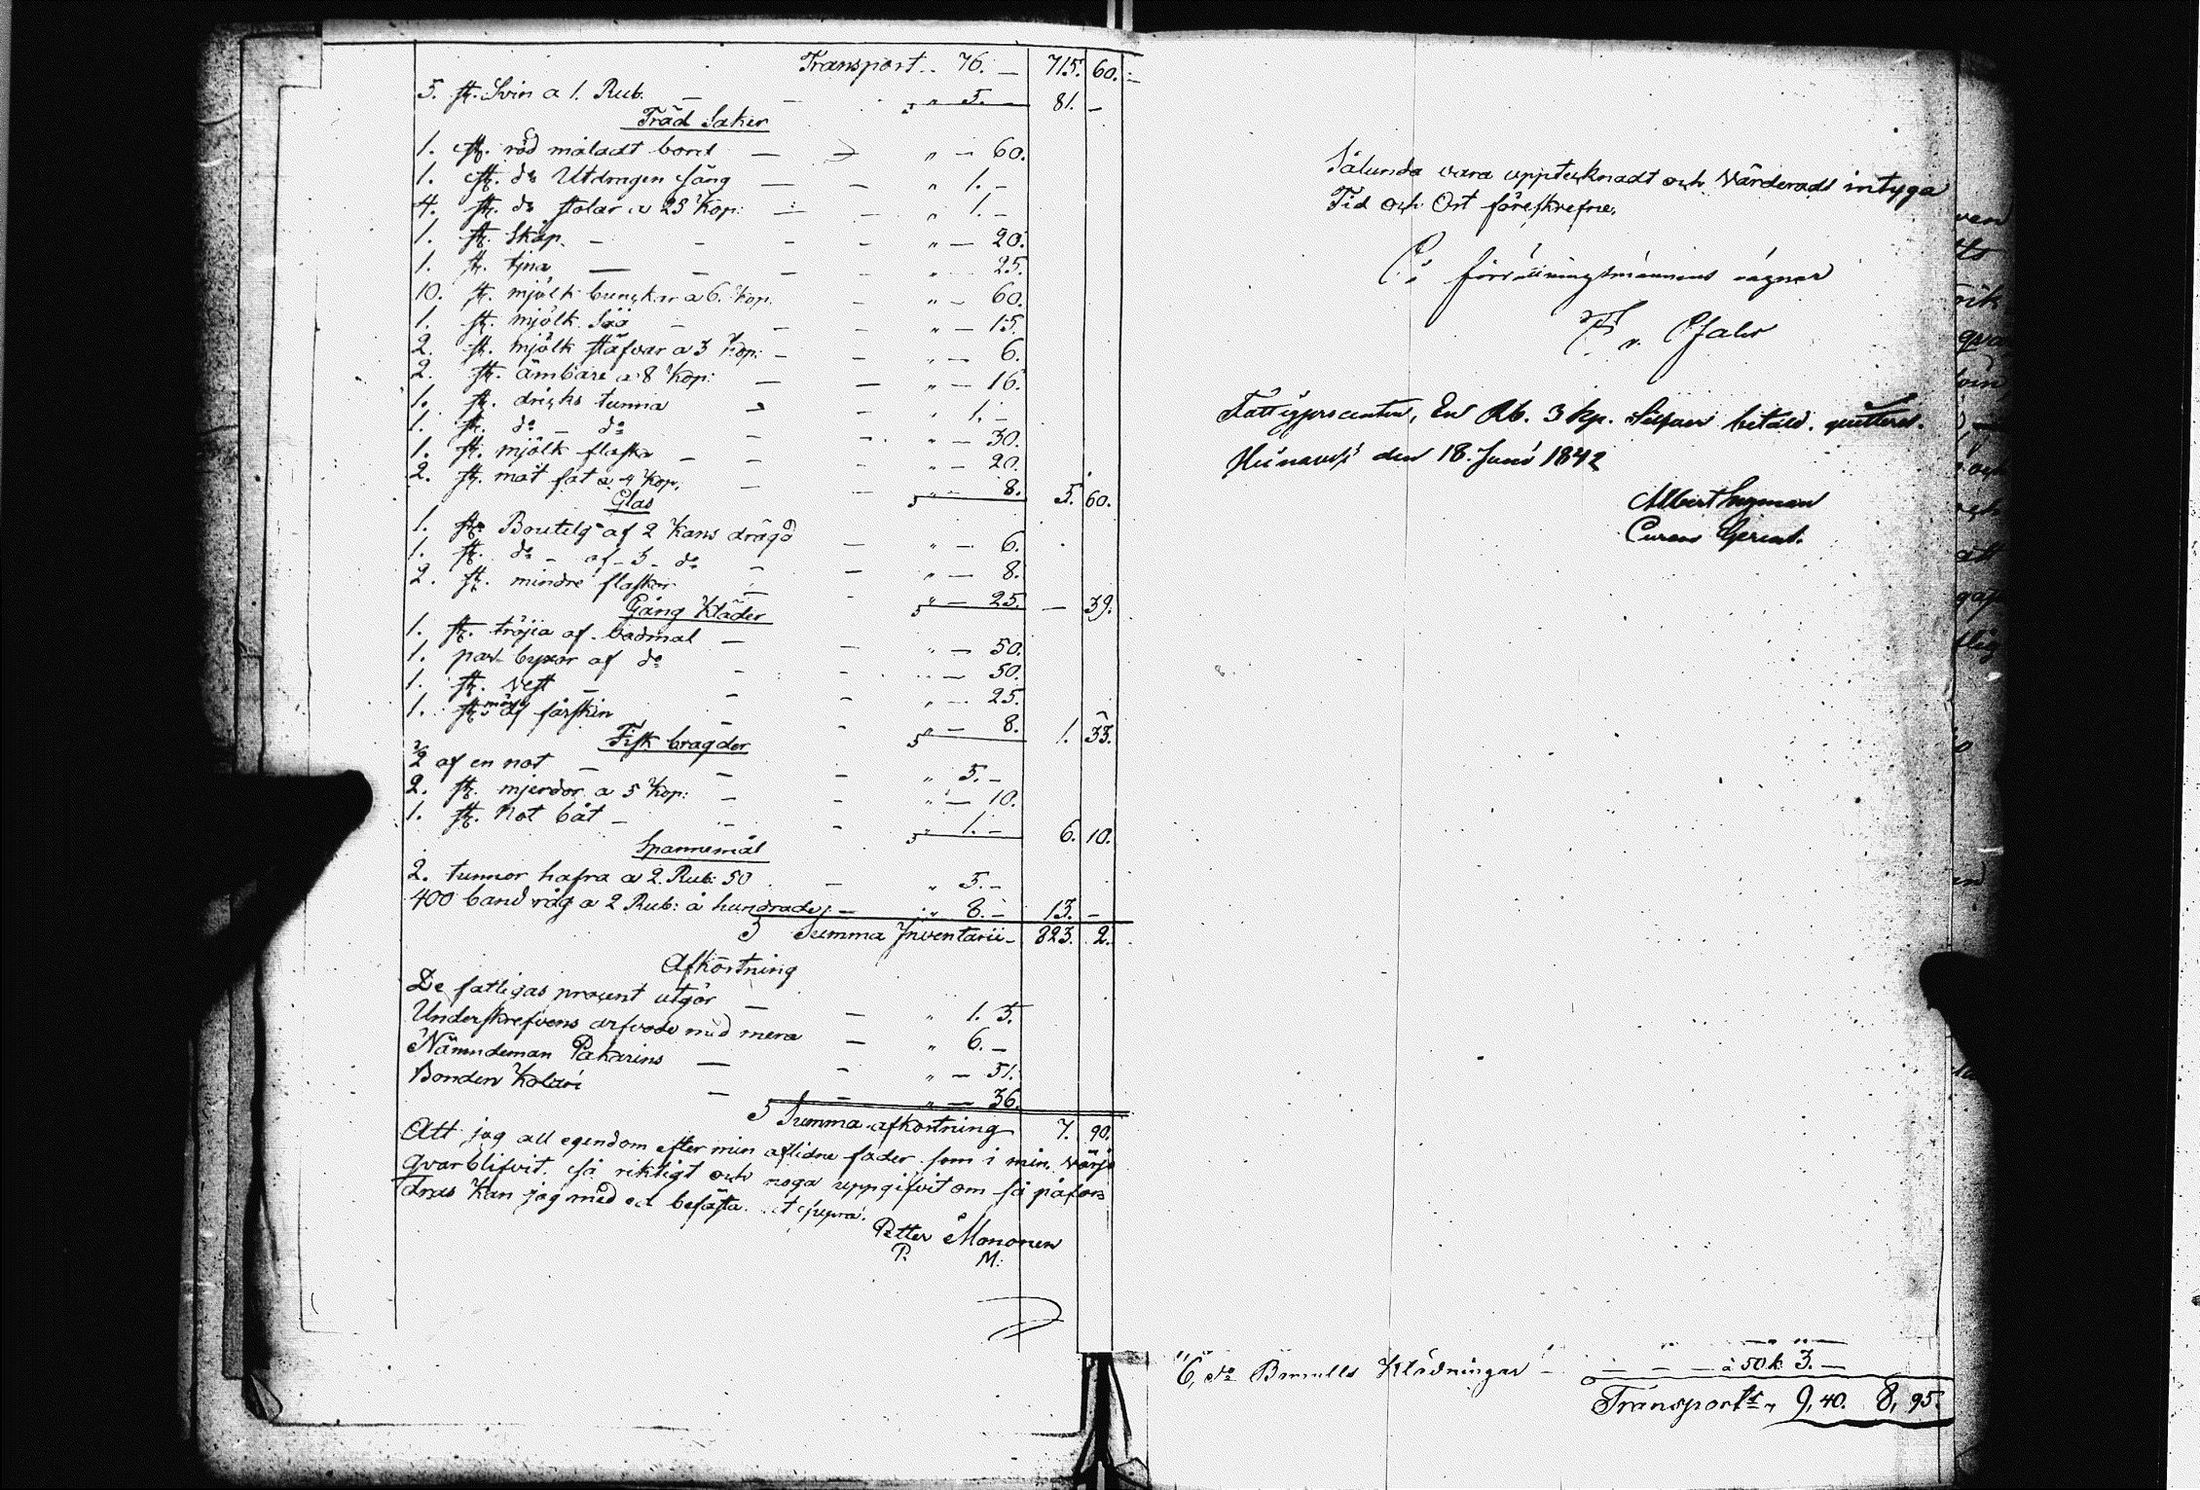 Transport .. 76. — 715. 60. —
5. st. Svin a 1. Rub. — — „ 5. — 81. —
Träd Saker
1. st. röd måladt bord — — „ — 60.
1. st. do Utdragen säng — — „ 1. —
4. st. do stolar a 25 Kop: — — „ 1. —
1. st. skåp. — — — — „ — 20.
1. st. tjna — — — — „ — 25.
10. st. mjölk bunckar a 6. Kop. — „ — 60.
1. st. mjölk Såå — — — „ — 15.
2. st. mjölk stäfvar a 3 Kop: — — „ — 6.
2. st. ämbare a 8 Kop: — — „ — 16.
1. st. dricks tunna — — „ 1. —
1. st. do — do — — „ — 30.
1. st. mjölk flaska — — — „ — 20.
2. st. mat fat a 4 Kop. — — „ — 8. 5. 60.
Glas
1. st. Boutelg af 2 Kans drägd — „ — 6.
1. st. do — af — 3 — do — — „ — 8.
2. st. mindre flaskor — — „ — 25. — 39.
Gång Kläder
1. st. tröjia af vadmal — — „ — 50.
1. par byxor af do — — „ — 50.
1. st. Vest — — — „ — 25.
1. st. af fårskin — — „ — 8. 1. 33.
Fisk bragder
1/2 af en not — — — „ 5. —
2. st. mjerdor a 5 Kop: — — „ — 10.
1. st. Not båt — — — „ 1. — 6. 10.
Spannemål
2. tunnor hafra a 2. Rub: 50 — „ 5. —
400 band råg a 2 Rub: å hundrade — „ 8. — 13. —
Summa Inventarii — 823. 2.
Afkortning
De fattigas procent utgör — — „ 1. 3.
Underskrefvens arfvode med mera — „ 6. —
Nämndeman Pakarins — — „ — 51.
Bonden Kolari — — „ — 36.
Summa afkortning 7. 90.
Att jag all egendom efter min aflidne fader som i min värjo
qvarblifvit, så riktigt och noga uppgifvit om så påfor
dras Kan jag med ed befästa. ut supra.
Petter Mononen
P. M.
Sålunda vara upptecknadt och Värderadt intyga
Tid och Ort föreskrefne.
På förrättningsmannens vägnar
Fattigprocenten, En Rb. 3 kp. Silfver betald. quitteras.
den 18. Juni 1842
Albert Ingman
„6, do Bomulls Klädningar — — — — à 50 k. 3. —
Transport „ 9, 40. 8, 95.